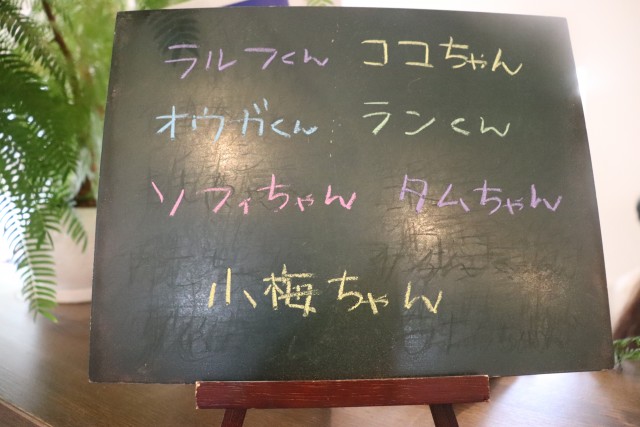 ラルフくん ココちゃん
オウガくん ランくん
ソフィちゃん タムちゃん
小梅ちゃん